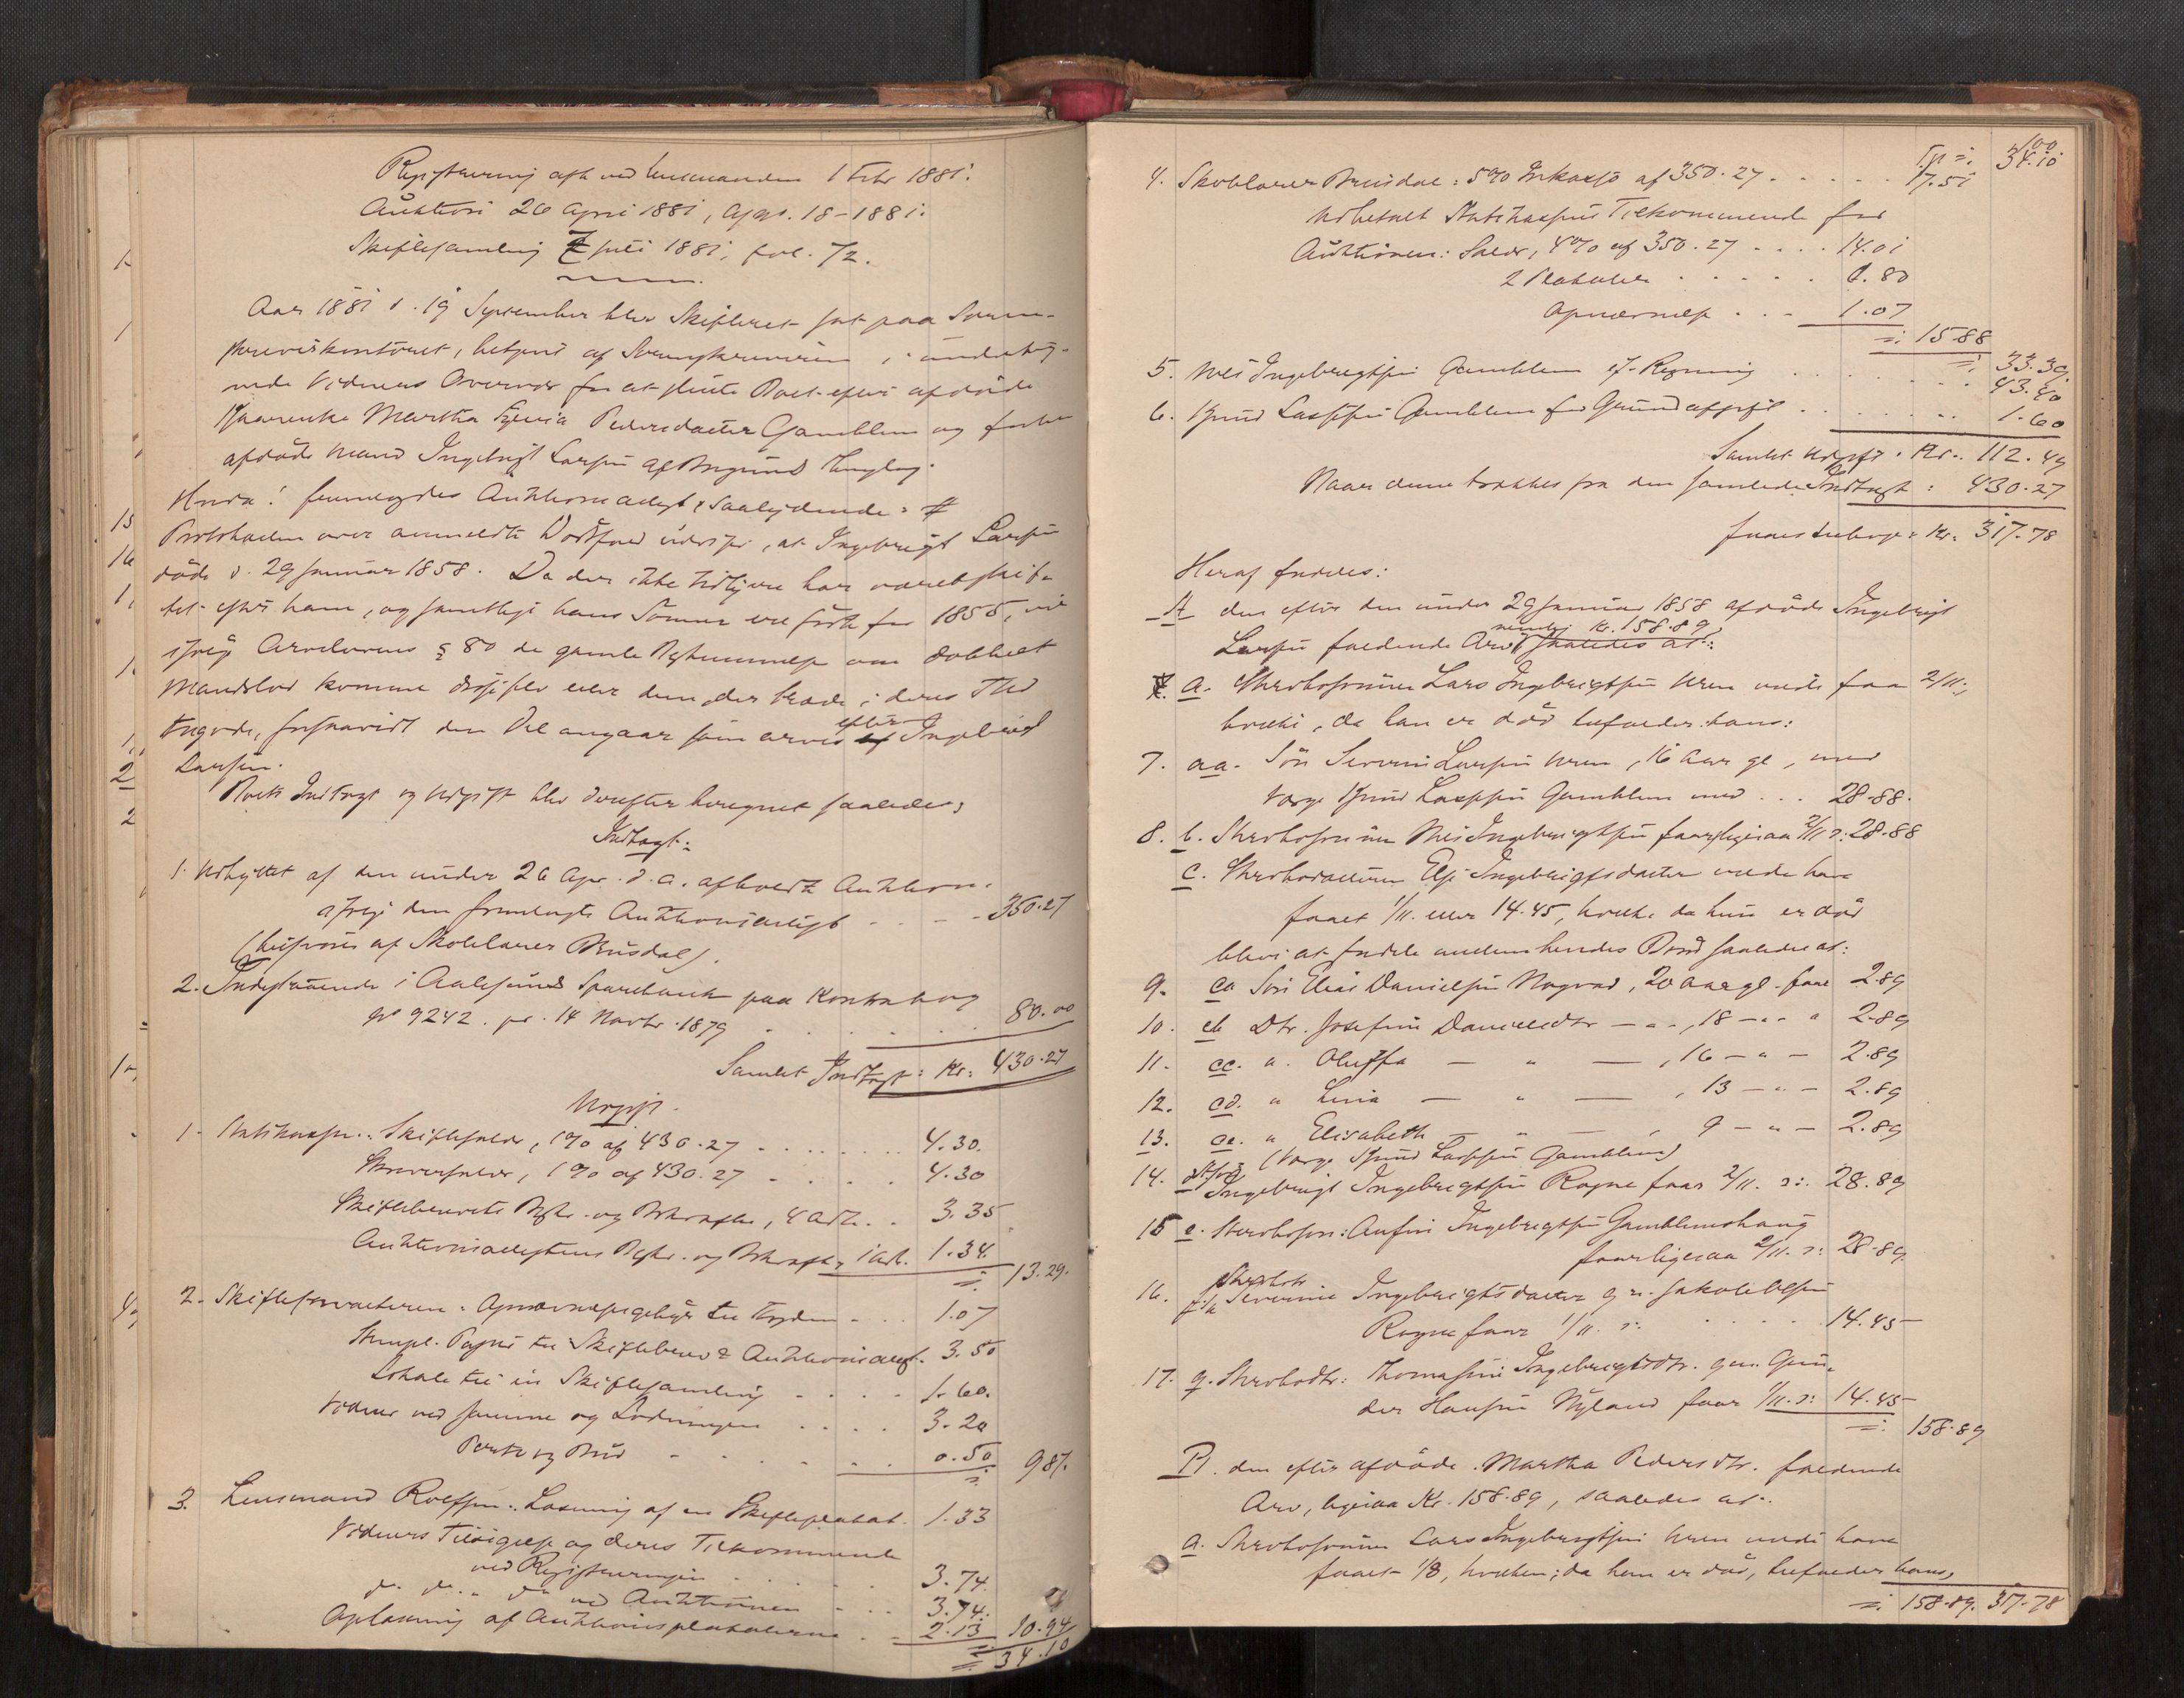 Registrering afh. ved Lensmanden 1 Febr 1881.
Auktion 26 April 1881, 18-1881.
Skiftesamling 7 Juli 1881, fol. 72.
Aar 1881 d. 19 September blev Skifteret sat paa Soren-
skriverkontoret, betjent af Sorenskriveren i underteg-
nede Vidners Overvær for at slutte Boet efter afdöde
Martha Pedersdatter Gamblem og forhen
afdöde Mand Ingebrigt Larsen af Borgund Thinglag.
Hvorda! fremlagdes Auktionsudtog saalydende: #
Protokollen over anmeldte Dödsfald udviser, at Ingebrigt Larsen
döde d. 29 Januar 1858. Da der ikke tidligere har været skif-
tet efter ham, og samtlige hans Sönner ere födte för 1855, vil
ifölge Arvelovens § 80 de gamle Bestemmelser om dobbelt
Mandslod komme disse selv eller dem, der træde i deres Sted
tilgode, forsaavidt den Del angaar som arves efter Ingebrigt
Larsen.
Boets Indtægt og Udgift blev derefter beregnet saaledes:
Indtægt:
1. Udbyttet af den under 26 Apr. d. a. afholdte Auktion
ifölge den fremlagte Auktionsudtog - - - 350.27
(beror af Skolelærer Brusdal).
2. Indestaaende i Aalesunds Sparebank paa Kontrabog
No 9242. pr. 14 Novbr. 1879 . . . . . 80.00
Samlet Indtægt: Kr. 430.27
Udgift.
1. Statskassen: Skiftesalær, 1% af 430.27 . . . . 4.30.
Skriversalær, 1% af 430.27 . . . . 4.30
Skiftebrevets og Bekræftn, 4 Ark. . . 3.35
Auktionsudtogtens og Bekræftn, 1 Ark. 1.34.
=: 13.29.
2. Skifteforvalteren: Opnævnelsesgebyr til . . . 1.07
Stempl. Papir til Skiftebrev & Auktionsudt. 3.50
Lokale til en Skiftesamling . . . . 1.60.
Vidner ved samme og Slutningen . . . . 3.20
Porto og Bud . . . . . 0.50
=: 9.87.
3. Lensmand Rolfsen: Læsning af en Skifteplakat. 1.33
Vidners Tilsigelse og deres Tilkommende
ved Registreringen . . . . 3.74.
do do " do ved Auktionen . . . 3.74.
Oplæsning af Auktionsplakaterne . . 2.13
10.94
=: 34.10
Tp =: 34.10
4. Skolelærer Brusdal: 5% Inkasso af 350.27 . . . . . 17.51
Udbetalt Statskassens Tilkommende for
Auktionen: Salær, 4% af 350.27 . . . . 14.01
2 Plakater . . . . . 0.80
Opnævnelse . . . 1.07
=: 15.88
=: 33.39.
5. Nils Ingebrigtsen Gamblem if. Regning . . . . . . 43.40
6. Knud Larssen Gamblem for Grundafgift . . . . . . 1.60
Samlet Udgift: Kr. 112.49
Naar denne trækkes fra den samlede Indtægt: 430.27
faaes tilovers: Kr. 317.78
Heraf findes:
A den efter den under 29 Januar 1858 afdöde Ingebrigt
Larsen faldende Arv, nemlig Kr. 158.89, saaledes at:
a. Skrobosönnen Lars Ingebrigtsen Uren vilde faa 2/11,
hvilke, da han er död tilfalder hans:
7. aa. Sön Severin Larsen Uren, 16 Aar gl., med
Værge Knud Larssen Gamblem med . . . 28.88.
8. b. Nils Ingebrigtsen faar ligesaa 2/11 o: 28.88
c. Else Ingebrigtsdatter vilde have
faaet 1/11. eller 14.45, hvilke da hun er död
blive at fordele mellem hendes Börn saaledes at:
9. ca Sön Elias Danielsen Magerud, 20 Aar gl. faar 2.89
10. cb Dtr. Josefine Danielsdtr - " -, 18 - " " 2.89
11. cc. " Oluffa - " - , 16 - " - 2.89
12. cd. " Lina - " - , 13 - " - 2.89
13. ce. " Elisabeth - " - , 9 - " - 2.89
(Værge Knud Larssen Gamblem)
14. Ingebrigt Ingebrigtsen Rogne faar 2/11. o: 28.89
15 e. Anfin Ingebrigtsen Gamblemshaug
faar ligesaa 2/11. o: 28.89.
16. f. Severine Ingebrigtsdatter g. m. Jakob Olsen
Rogne faar 1/11. o: . . . . . 14.45
17. g. Thomasine Ingebrigtsdtr. gm. Gun-
der Hansen Nyland faar 1/11. o: 14.45
=: 158.89
B. den efter afdöde Martha Pedersdtr. faldende
Arv, ligesaa Kr. 158.89, saaledes at:
a. Lars Ingebrigtsen Uren vilde have
faaet 1/8, hvilken, da han er död, tilfalder hans,
=: 158.89. 317.78